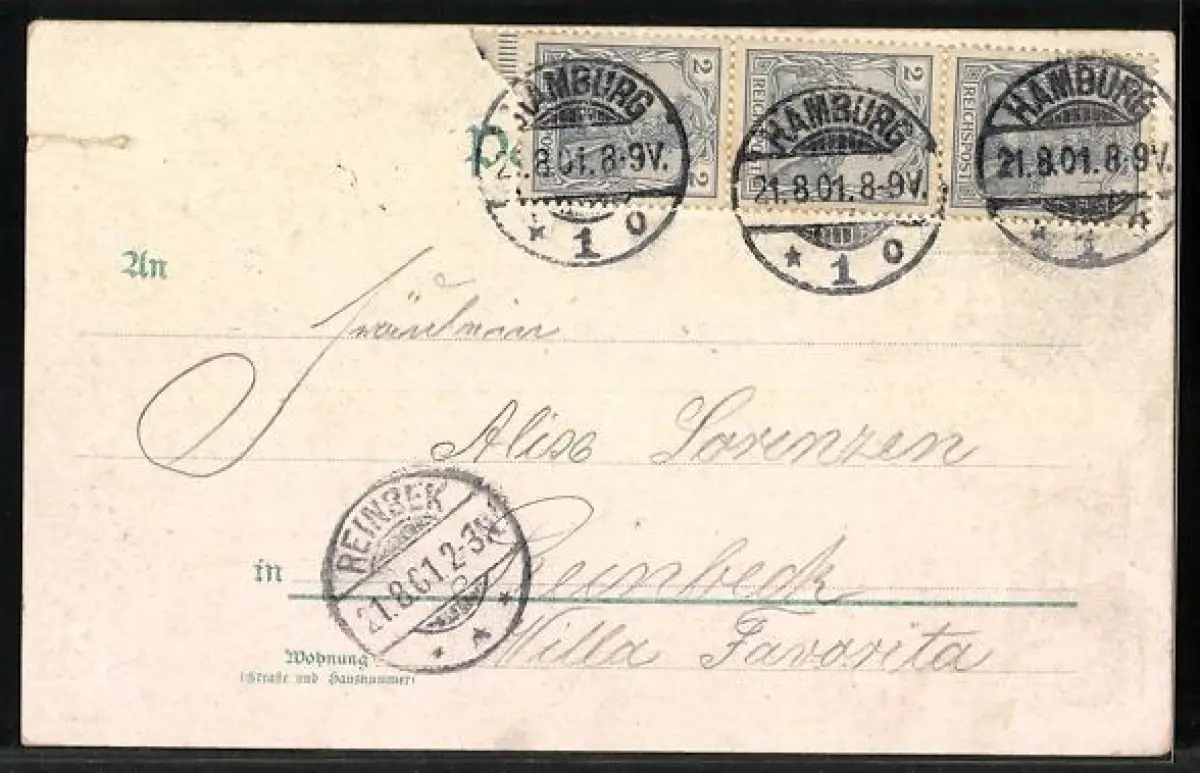 2 2 2
REICHSPOST
HAMBURG HAMBURG HAMBURG
21.8.01.8-9V. 21.8.01.8-9V. 21.8.01.8-9V.
* 1 o * 1 o * 1
An
Fräulein
Alise Lorenzen
REINBEK
21.8.01.2-3N.
in Reinbeck
Wohnung Villa Favorita
(Straße und Hausnummer)